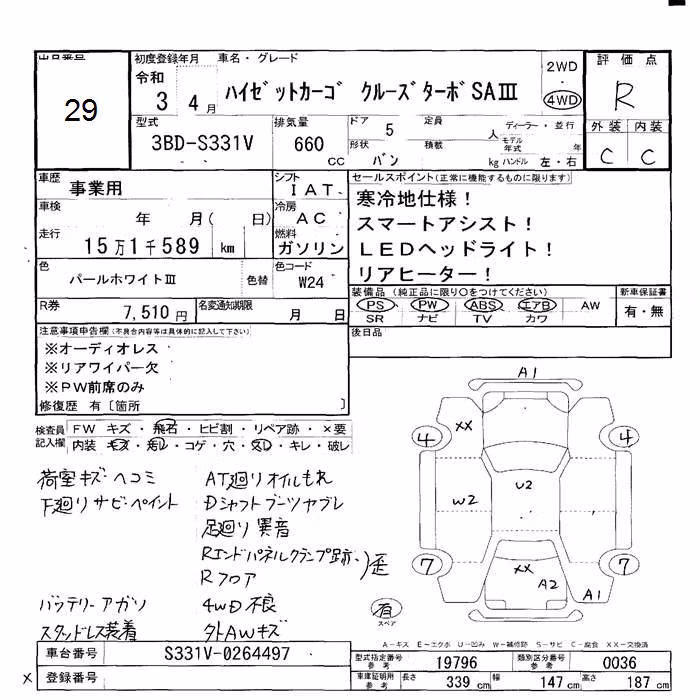 出品番号
29
初度登録年月
令和
3年 4月
車名・グレード
ハイゼットカーゴ クルーズターボSAⅢ
2WD
・
4WD
評価点
R
外装 内装
C C
型式
3BD-S331V
排気量
660 CC
ドア 5
形状 バン
定員 人
積載 kg
ディーラー・並行
モデル年式 年
ハンドル 左・右
車歴 事業用
車検 年 月( 日)
走行 15万1千589 km
シフト IAT
冷房 AC
燃料 ガソリン
色 パールホワイトⅢ 色替
色コード W24
R券 7,510円
名変通知期限 月 日
セールスポイント(正常に機能するものに限ります)
寒冷地仕様!
スマートアシスト!
LEDヘッドライト!
リアヒーター!
装備品(純正品に限り○をつけてください)
PS・PW・ABS・エアB・AW
SR ナビ TV カワ
新車保証書
有・無
後日品
注意事項申告欄(不具合内容等は具体的に記入して下さい)
※オーディオレス
※リアワイパー欠
※PW前席のみ
修復歴 有〔箇所 〕
検査員記入欄
FW キズ・飛石・ヒビ割・リペア跡・×要
内装 キズ・汚レ・コゲ・穴・欠レ・キレ・破レ
荷室キズ・ヘコミ
下廻りサビ・ペイント
バッテリーアガリ
スタッドレス装着
AT廻りオイルもれ
Dシャフトブーツヤブレ
足廻り異音
Rエンドパネルクランプ跡・)歪
Rフロア
4WD不良
外AWキズ
A1
XX
4
4
W2
U2
7
7
XX
A2
A1
有
スペア
A-キズ E-エクボ U-凹み W-補修跡 S-サビ C-腐食 XX-交換済
車台番号 S331V-0264497
× 登録番号
型式指定番号参考 19796
類別区分番号参考 0036
車庫証明用参考 長さ 339cm 幅 147cm 高さ 187cm